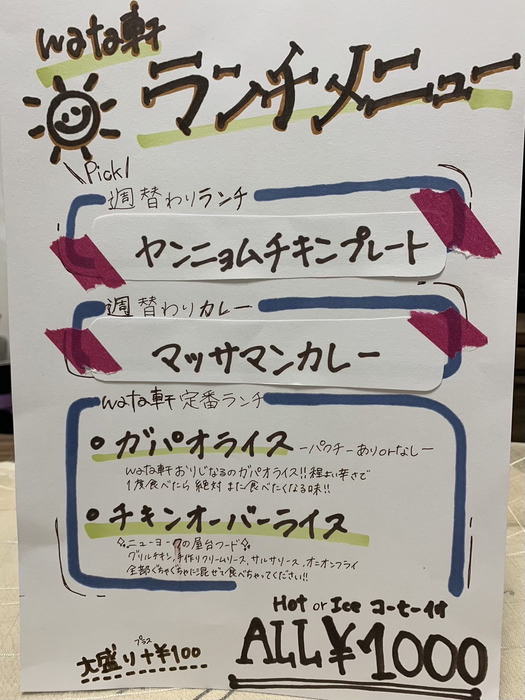 wata軒
ランチメニュー
\Pick/
週替わりランチ
ヤンニョムチキンプレート
週替わりカレー
マッサマンカレー
wata軒定番ランチ
• ガパオライス -パクチーありorなし-
wata軒おりじなるのガパオライス!!程よい辛さで
1度食べたら絶対また食べたくなる味!!
• チキンオーバーライス
ニューヨークの屋台フード
グリルチキン,手作りクリームソース,サルサソース,オニオンフライ
全部ぐちゃぐちゃに混ぜて食べちゃってください!!
Hot or Ice コーヒー付
ALL¥1000
プラス
大盛り+¥100